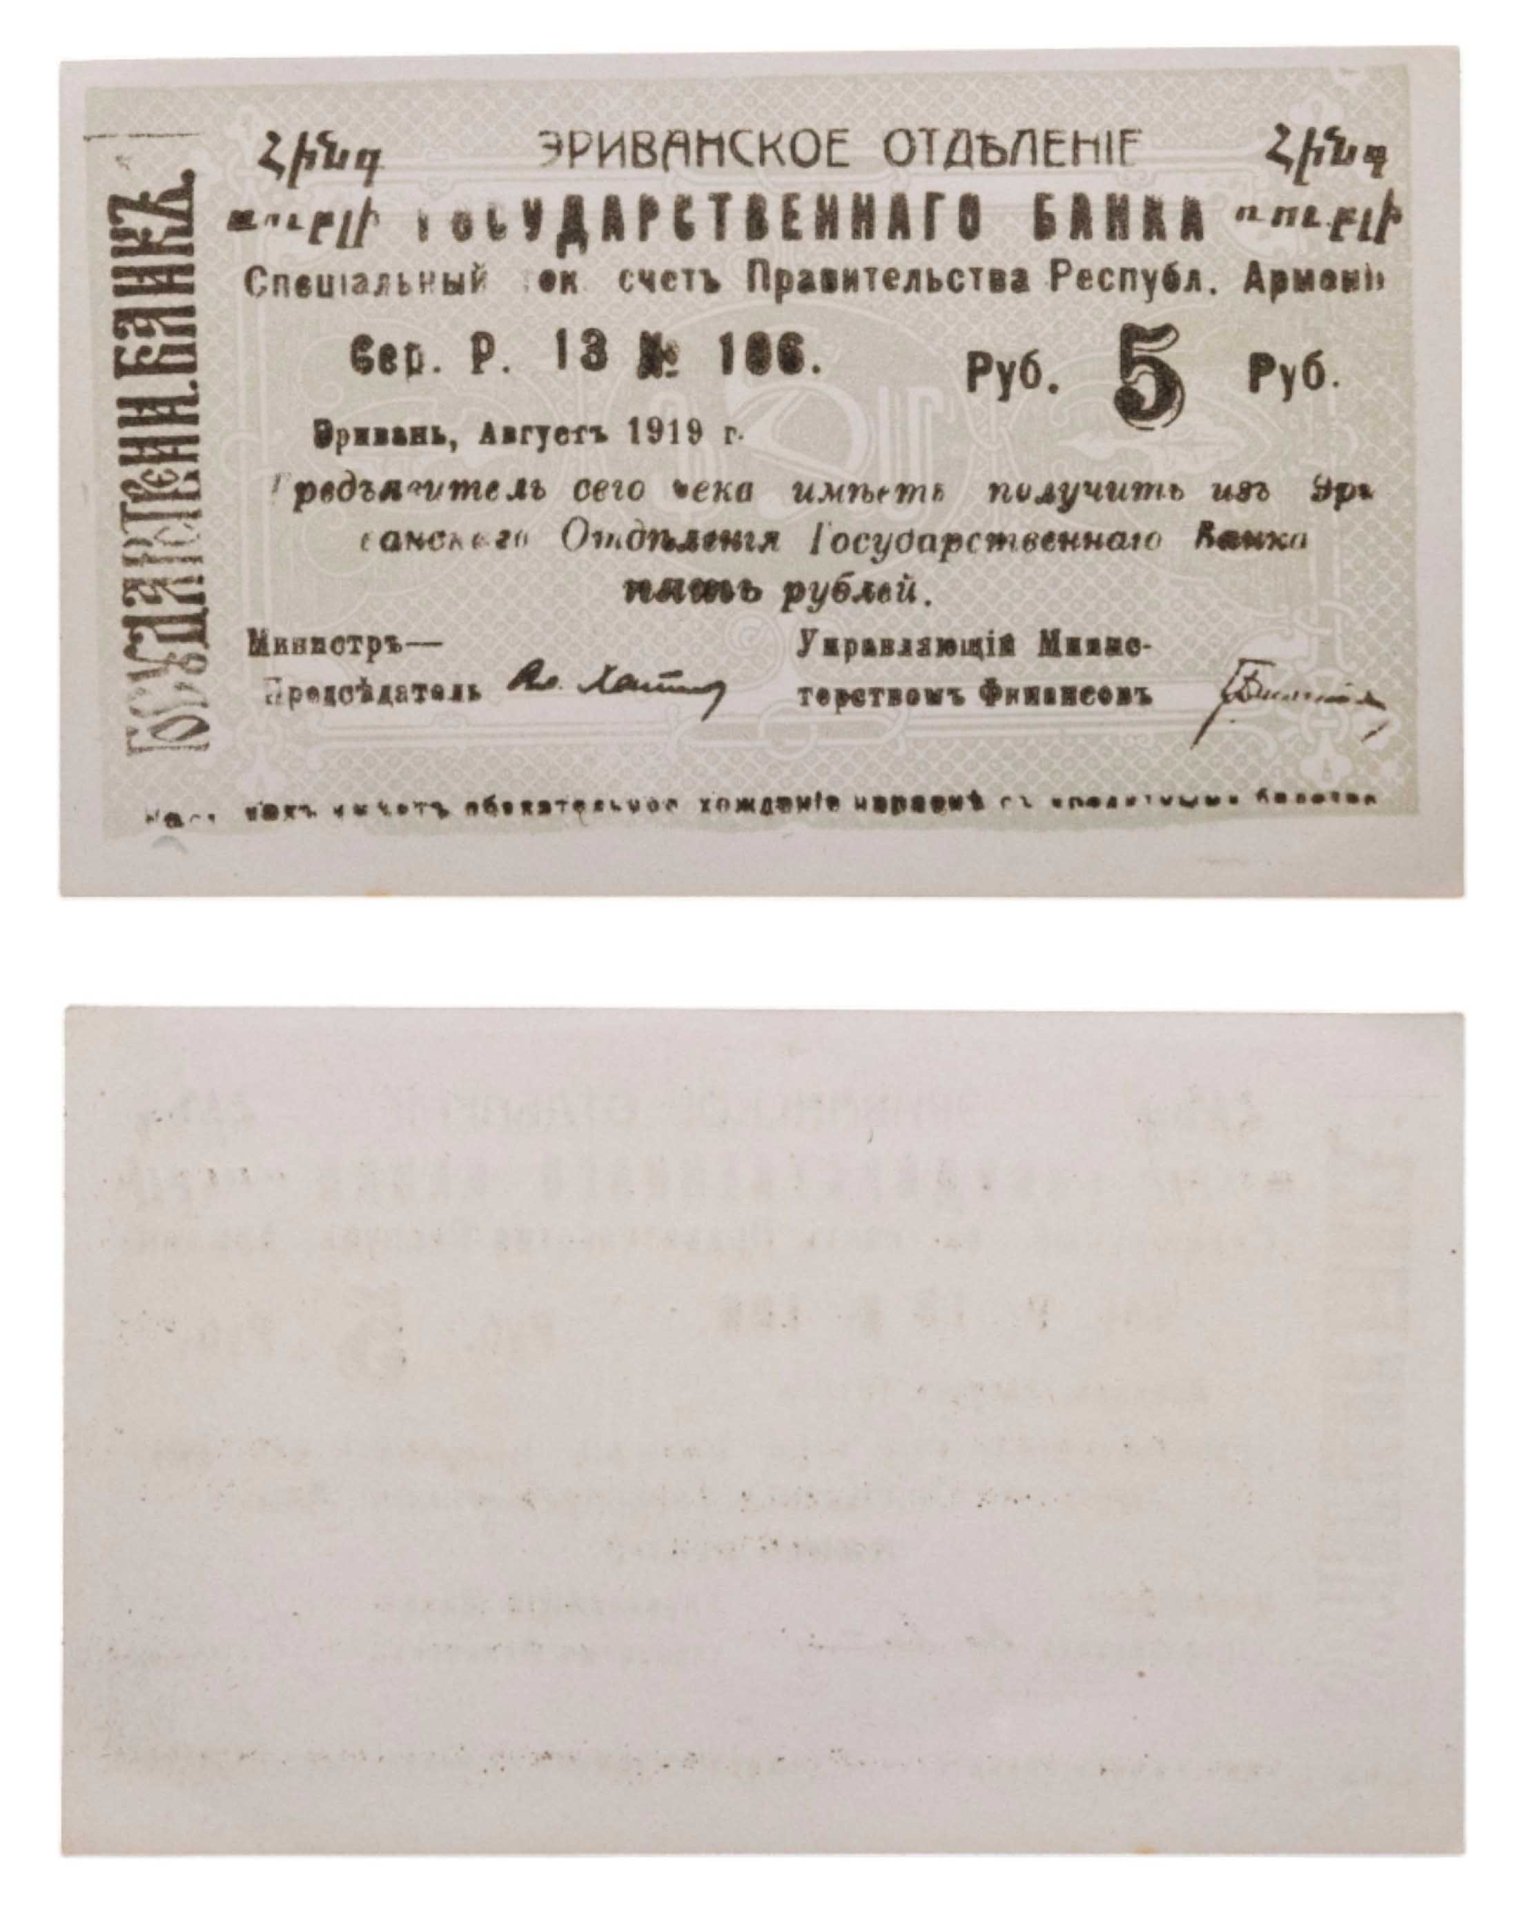 ГОСУДАРСТВЕНН. БАНКЪ.
Հինգ ЭРИВАНСКОЕ ОТДѢЛЕНІЕ Հինգ
ռուբլի ГОСУДАРСТВЕННАГО БАНКА ռուբլի
Спеціальный тек. счетъ Правительства Республ. Арменіи
Сер. Р. 13 № 106. Руб. 5 Руб.
Эривань, Августъ 1919 г.
Предъявитель сего чека имѣетъ получить изъ Эри-
ванскаго Отдѣленія Государственнаго Банка
пять рублей.
Министръ— Управляющій Минис-
Предсѣдатель Ал. Хатис терствомъ Финансовъ
Наст. чекъ имѣетъ обязательное хожденіе наравнѣ съ кредитными билетам